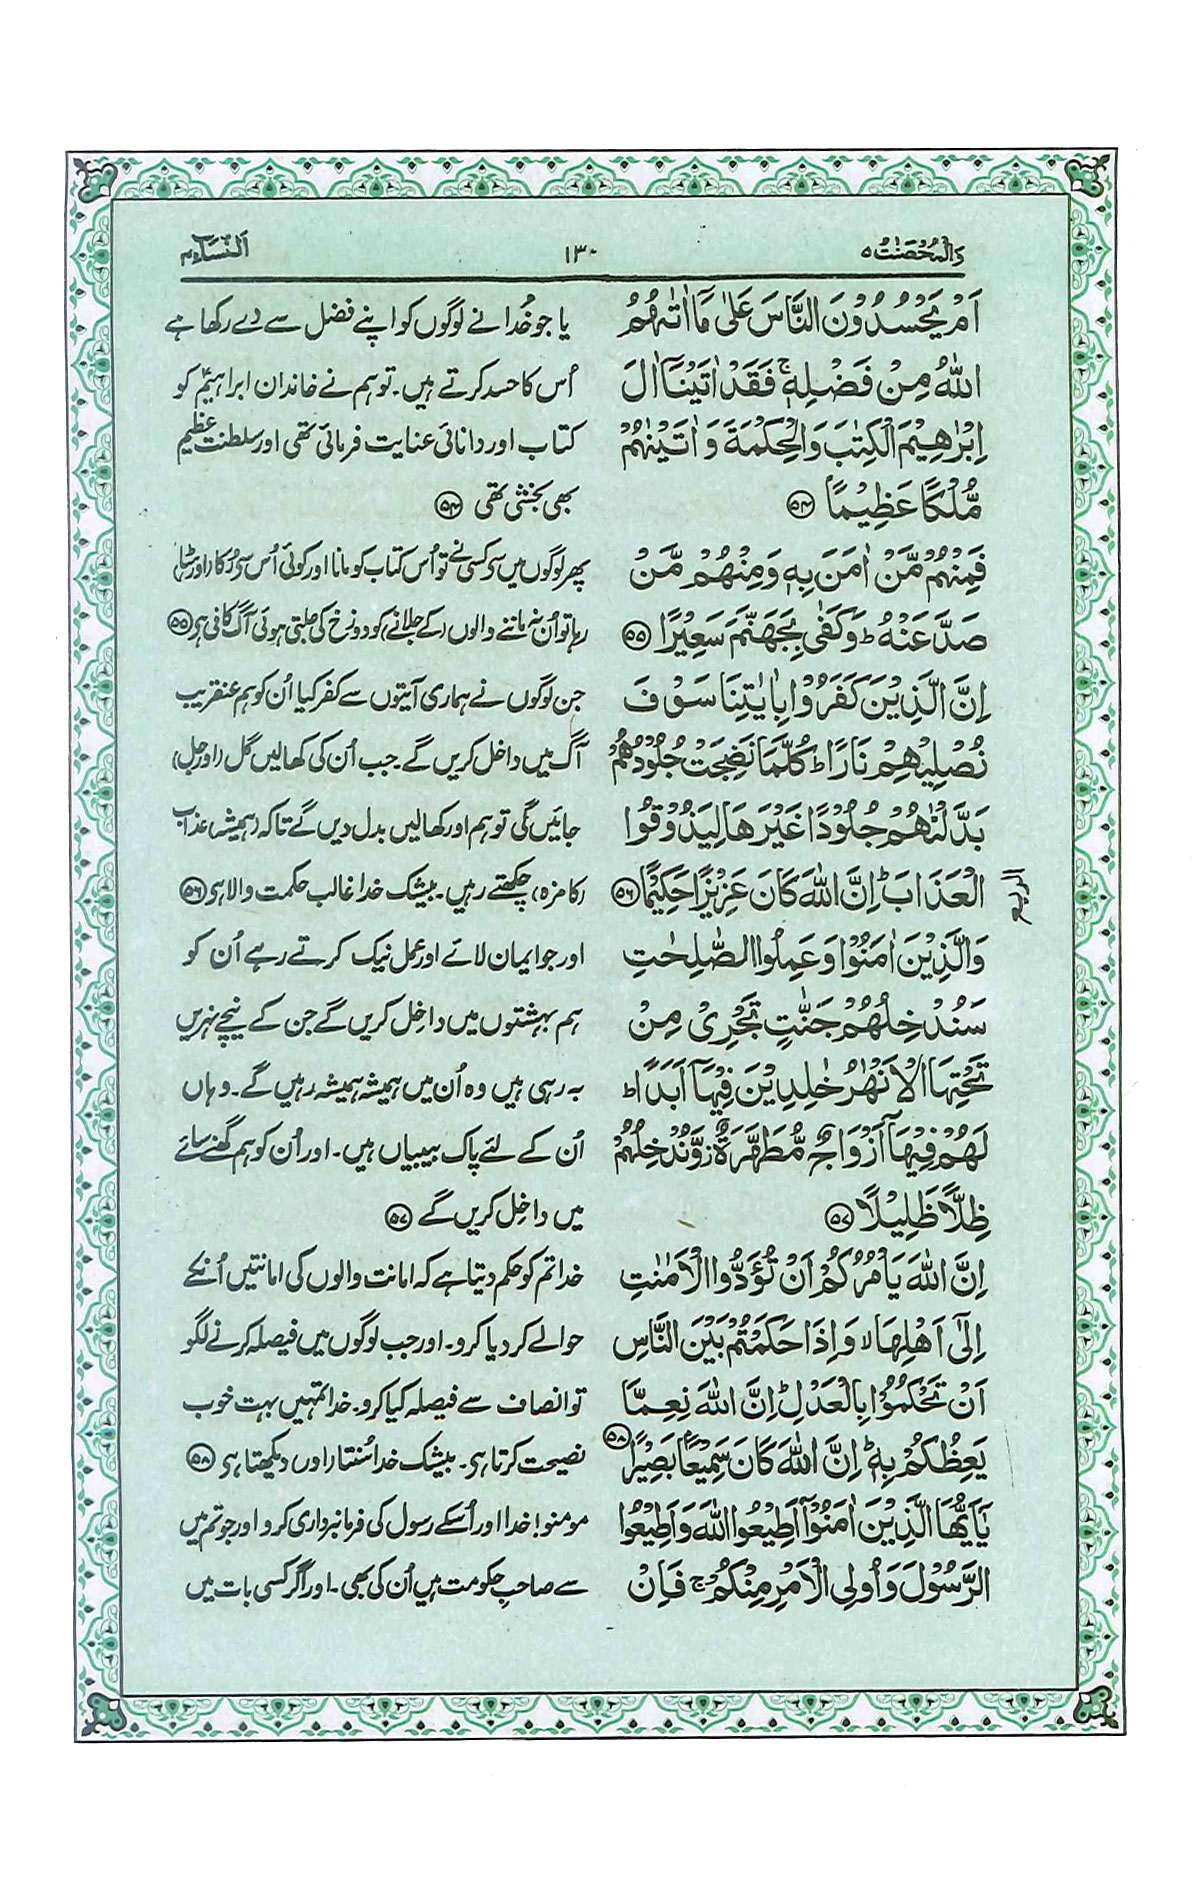 والمحصنٰت ۵
۱۳۰
النساء ۴
اَمْ يَحْسُدُوْنَ النَّاسَ عَلٰى مَآ اٰتٰىهُمُ
اللّٰهُ مِنْ فَضْلِهٖ ۚ فَقَدْ اٰتَيْنَآ اٰلَ
اِبْرٰهِيْمَ الْكِتٰبَ وَالْحِكْمَةَ وَاٰتَيْنٰهُمْ
مُّلْكًا عَظِيْمًا ۝۵۴
فَمِنْهُمْ مَّنْ اٰمَنَ بِهٖ وَمِنْهُمْ مَّنْ
صَدَّ عَنْهُ ؕ وَكَفٰى بِجَهَنَّمَ سَعِيْرًا ۝۵۵
اِنَّ الَّذِيْنَ كَفَرُوْا بِاٰيٰتِنَا سَوْفَ
نُصْلِيْهِمْ نَارًا ؕ كُلَّمَا نَضِجَتْ جُلُوْدُهُمْ
بَدَّلْنٰهُمْ جُلُوْدًا غَيْرَهَا لِيَذُوْقُوا
الْعَذَابَ ؕ اِنَّ اللّٰهَ كَانَ عَزِيْزًا حَكِيْمًا ۝۵۶
وَالَّذِيْنَ اٰمَنُوْا وَعَمِلُوا الصّٰلِحٰتِ
سَنُدْخِلُهُمْ جَنّٰتٍ تَجْرِيْ مِنْ
تَحْتِهَا الْاَنْهٰرُ خٰلِدِيْنَ فِيْهَآ اَبَدًا ؕ
لَهُمْ فِيْهَآ اَزْوَاجٌ مُّطَهَّرَةٌ ز وَّنُدْخِلُهُمْ
ظِلًّا ظَلِيْلًا ۝۵۷
اِنَّ اللّٰهَ يَاْمُرُكُمْ اَنْ تُؤَدُّوا الْاَمٰنٰتِ
اِلٰٓى اَهْلِهَا ۙ وَاِذَا حَكَمْتُمْ بَيْنَ النَّاسِ
اَنْ تَحْكُمُوْا بِالْعَدْلِ ؕ اِنَّ اللّٰهَ نِعِمَّا
يَعِظُكُمْ بِهٖ ؕ اِنَّ اللّٰهَ كَانَ سَمِيْعًۢا بَصِيْرًا ۝۵۸
يٰٓاَيُّهَا الَّذِيْنَ اٰمَنُوْٓا اَطِيْعُوا اللّٰهَ وَاَطِيْعُوا
الرَّسُوْلَ وَاُولِى الْاَمْرِ مِنْكُمْ ۚ فَاِنْ
الربع
یا جو خُدا نے لوگوں کو اپنے فضل سے دے رکھا ہے
اُس کا حسد کرتے ہیں۔ تو ہم نے خاندان ابراہیمؑ کو
کتاب اور دانائی عنایت فرمائی تھی اور سلطنت عظیم
بھی بخشی تھی ۝۵۴
پھر لوگوں میں سے کسی نے تو اُس کتاب کو مانا اور کوئی اُس سے رُکا (اور ہٹا)
رہا تو اُن نہ ماننے والوں (کے جلانے) کو دوزخ کی جلتی ہوئی آگ کافی ہی ۝۵۵
جن لوگوں نے ہماری آیتوں سے کفر کیا اُن کو ہم عنقریب
آگ میں داخل کریں گے۔ جب اُن کی کھالیں گل (اور جل)
جائیں گی تو ہم اور کھالیں بدل دیں گے تاکہ (ہمیشہ) عذاب
(کا مزہ) چکھتے رہیں۔ بیشک خدا غالب حکمت والا ہی ۝۵۶
اور جو ایمان لائے اور عمل نیک کرتے رہے اُن کو
ہم بہشتوں میں داخل کریں گے جن کے نیچے نہریں
بہ رہی ہیں وہ اُن میں ہمیشہ ہمیشہ رہیں گے۔ وہاں
اُن کے لئے پاک بیبیاں ہیں۔ اور اُن کو ہم گھنے سائے
میں داخل کریں گے ۝۵۷
خدا تم کو حکم دیتا ہے کہ امانت والوں کی امانتیں اُنکے
حوالے کر دیا کرو۔ اور جب لوگوں میں فیصلہ کرنے لگو
تو انصاف سے فیصلہ کیا کرو۔ خدا تمہیں بہت خوب
نصیحت کرتا ہی۔ بیشک خدا سُنتا (اور) دیکھتا ہی ۝۵۸
مومنو! خدا اور اُسکے رسول کی فرمانبرداری کرو اور جو تم میں
سے صاحب حکومت ہیں اُن کی بھی۔ اور اگر کسی بات میں